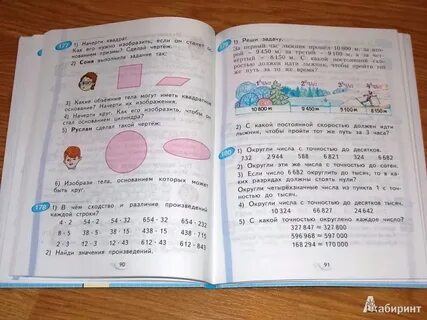 177 1) Начерти квадрат.
Как его нужно изобразить, если он станет
основанием призмы? Сделай чертёж.
2) Соня выполнила задание так:
3) Какие объёмные тела могут иметь квадратное
основание? Начерти их изображения.
4) Начерти круг. Как его изобразить, чтобы он
стал основанием цилиндра?
5) Руслан сделал такой чертёж:
6) Изобрази тела, основанием которых может
быть круг.
178 1) В чём сходство и различие произведений
каждой строки?
4 · 2 54 · 2 54 · 32 654 · 32 654 · 232
8 · 5 38 · 5 38 · 15 438 · 15 438 · 715
2 · 3 12 · 3 12 · 43 612 · 43 612 · 843
2) Найди значения произведений.
90
1) Реши задачу.
За первый час лыжник прошёл 10 800 м, за вто-
рой – 9 450 м, за третий – 9 100 м, а за
четвёртый – 8 150 м. С какой постоянной
скоростью должен идти лыжник, чтобы пройти тот
же путь за то же время?
10 800 м 9 450 м 9 100 м 8 150 м
2) С какой постоянной скоростью должен идти
лыжник, чтобы пройти тот же путь за 3 часа?
180 1) Округли числа с точностью до десятков.
732 2 944 588 6 321 824
2) Округли эти же числа с точностью до сотен.
3) Если число 6 682 округлить до тысяч, то в каких
разрядах должны стоять нули?
Округли четырёхзначные числа из пункта 1 с точностью
до тысяч.
4) Округли числа с точностью до десятков тысяч.
10 324 66 827 24 642
5) С какой точностью округлено каждое число?
327 847 ≈ 327 800
596 968 ≈ 597 000
168 294 ≈ 170 000
91
Лабиринт